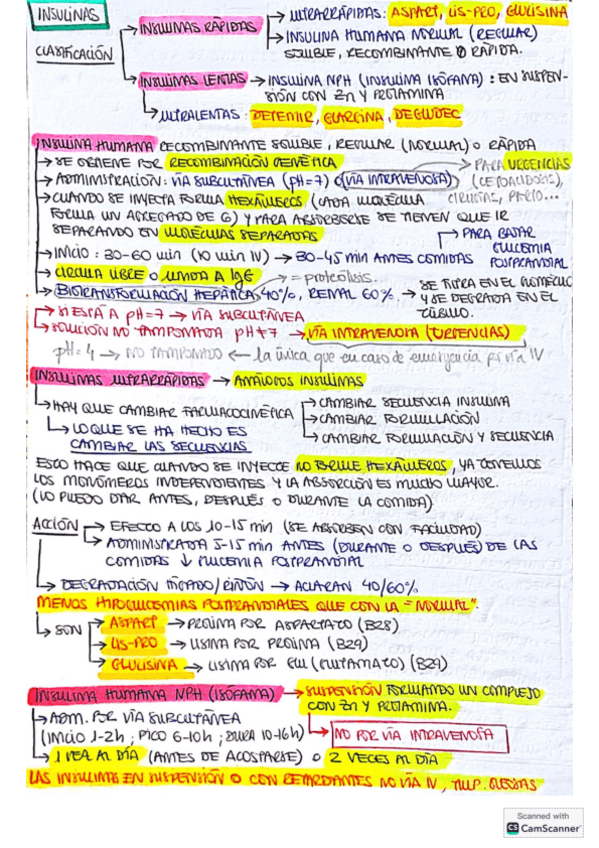 INSULINAS
CLASIFICACIÓN
INSULINAS RÁPIDAS → ULTRARRÁPIDAS: ASPART, LIS-PRO, GLULISINA
→ INSULINA HUMANA NORMAL (REGULAR)
SOLUBLE, RECOMBINANTE O RÁPIDA.
INSULINAS LENTAS → INSULINA NPH (INSULINA ISÓFANA): EN SUSPEN-
SIÓN CON Zn Y PROTAMINA
→ ULTRALENTAS: DETEMIR, GLARGINA, DEGLUDEC
INSULINA HUMANA RECOMBINANTE SOLUBLE, REGULAR (NORMAL) O RÁPIDA
→ SE OBTIENE POR RECOMBINACIÓN GENÉTICA
→ ADMINISTRACIÓN: VÍA SUBCUTÁNEA (pH=7) (VÍA INTRAVENOSA) → PARA URGENCIAS
(CETOACIDOSIS),
CIRUGÍAS, PARTO...
→ CUANDO SE INYECTA FORMA HEXÁMEROS (CADA MOLÉCULA
FORMA UN AGREGADO DE 6) Y PARA ABSORBERSE SE TIENEN QUE IR
SEPARANDO EN MOLÉCULAS SEPARADAS
→ INICIO: 30-60 min (10 min IV) → 30-45 min ANTES COMIDAS
→ PARA BAJAR
GLUCEMIA
POSTPRANDIAL
→ CIRCULA LIBRE O UNIDA A IgG
= proteólisis.
→ BIOTRANSFORMACIÓN HEPÁTICA 40%, RENAL 60% → SE FILTRA EN EL GLOMÉRULO
Y SE DEGRADA EN EL
TÚBULO.
→ SI ESTÁ A pH=7 → VÍA SUBCUTÁNEA
→ SOLUCIÓN NO TAMPONADA pH≠7 → VÍA INTRAVENOSA (URGENCIAS)
pH=4 → NO TAMPONADO ← la única que en caso de emergencia por vía IV
INSULINAS ULTRARRÁPIDAS → ANÁLOGOS INSULINAS
→ HAY QUE CAMBIAR FARMACOCINÉTICA → CAMBIAR SECUENCIA INSULINA
→ CAMBIAR FORMULACIÓN
→ CAMBIAR FORMULACIÓN Y SECUENCIA
→ LO QUE SE HA HECHO ES
CAMBIAR LAS SECUENCIAS
ESTO HACE QUE CUANDO SE INYECTE NO FORME HEXÁMEROS, YA TENEMOS
LOS MONÓMEROS INDEPENDIENTES Y LA ABSORCIÓN ES MUCHO MAYOR.
(LO PUEDO DAR ANTES, DESPUÉS O DURANTE LA COMIDA)
ACCIÓN → EFECTO A LOS 10-15 min (SE ABSORBEN CON FACILIDAD)
→ ADMINISTRADA 5-15 min ANTES (DURANTE O DESPUÉS) DE LAS
COMIDAS ↓ GLUCEMIA POSTPRANDIAL
→ DEGRADACIÓN HÍGADO/RIÑÓN → ACLARAN 40/60%
MENOS HIPOGLUCEMIAS POSTPRANDIALES QUE CON LA "NORMAL".
→ SON → ASPART → PROLINA POR ASPARTATO (B28)
→ LIS-PRO → LISINA POR PROLINA (B29)
→ GLULISINA → LISINA POR GLU (GLUTAMATO) (B29)
INSULINA HUMANA NPH (ISÓFANA) → SUSPENSIÓN FORMANDO UN COMPLEJO
CON Zn Y PROTAMINA.
→ ADM. POR VÍA SUBCUTÁNEA
(INICIO 1-2h; PICO 6-10h; DURA 10-16h) → NO POR VÍA INTRAVENOSA
→ 1 VEZ AL DÍA (ANTES DE ACOSTARSE) O 2 VECES AL DÍA
LAS INSULINAS EN SUSPENSIÓN O CON RETARDANTES NO VÍA IV,
Scanned with
CS CamScanner